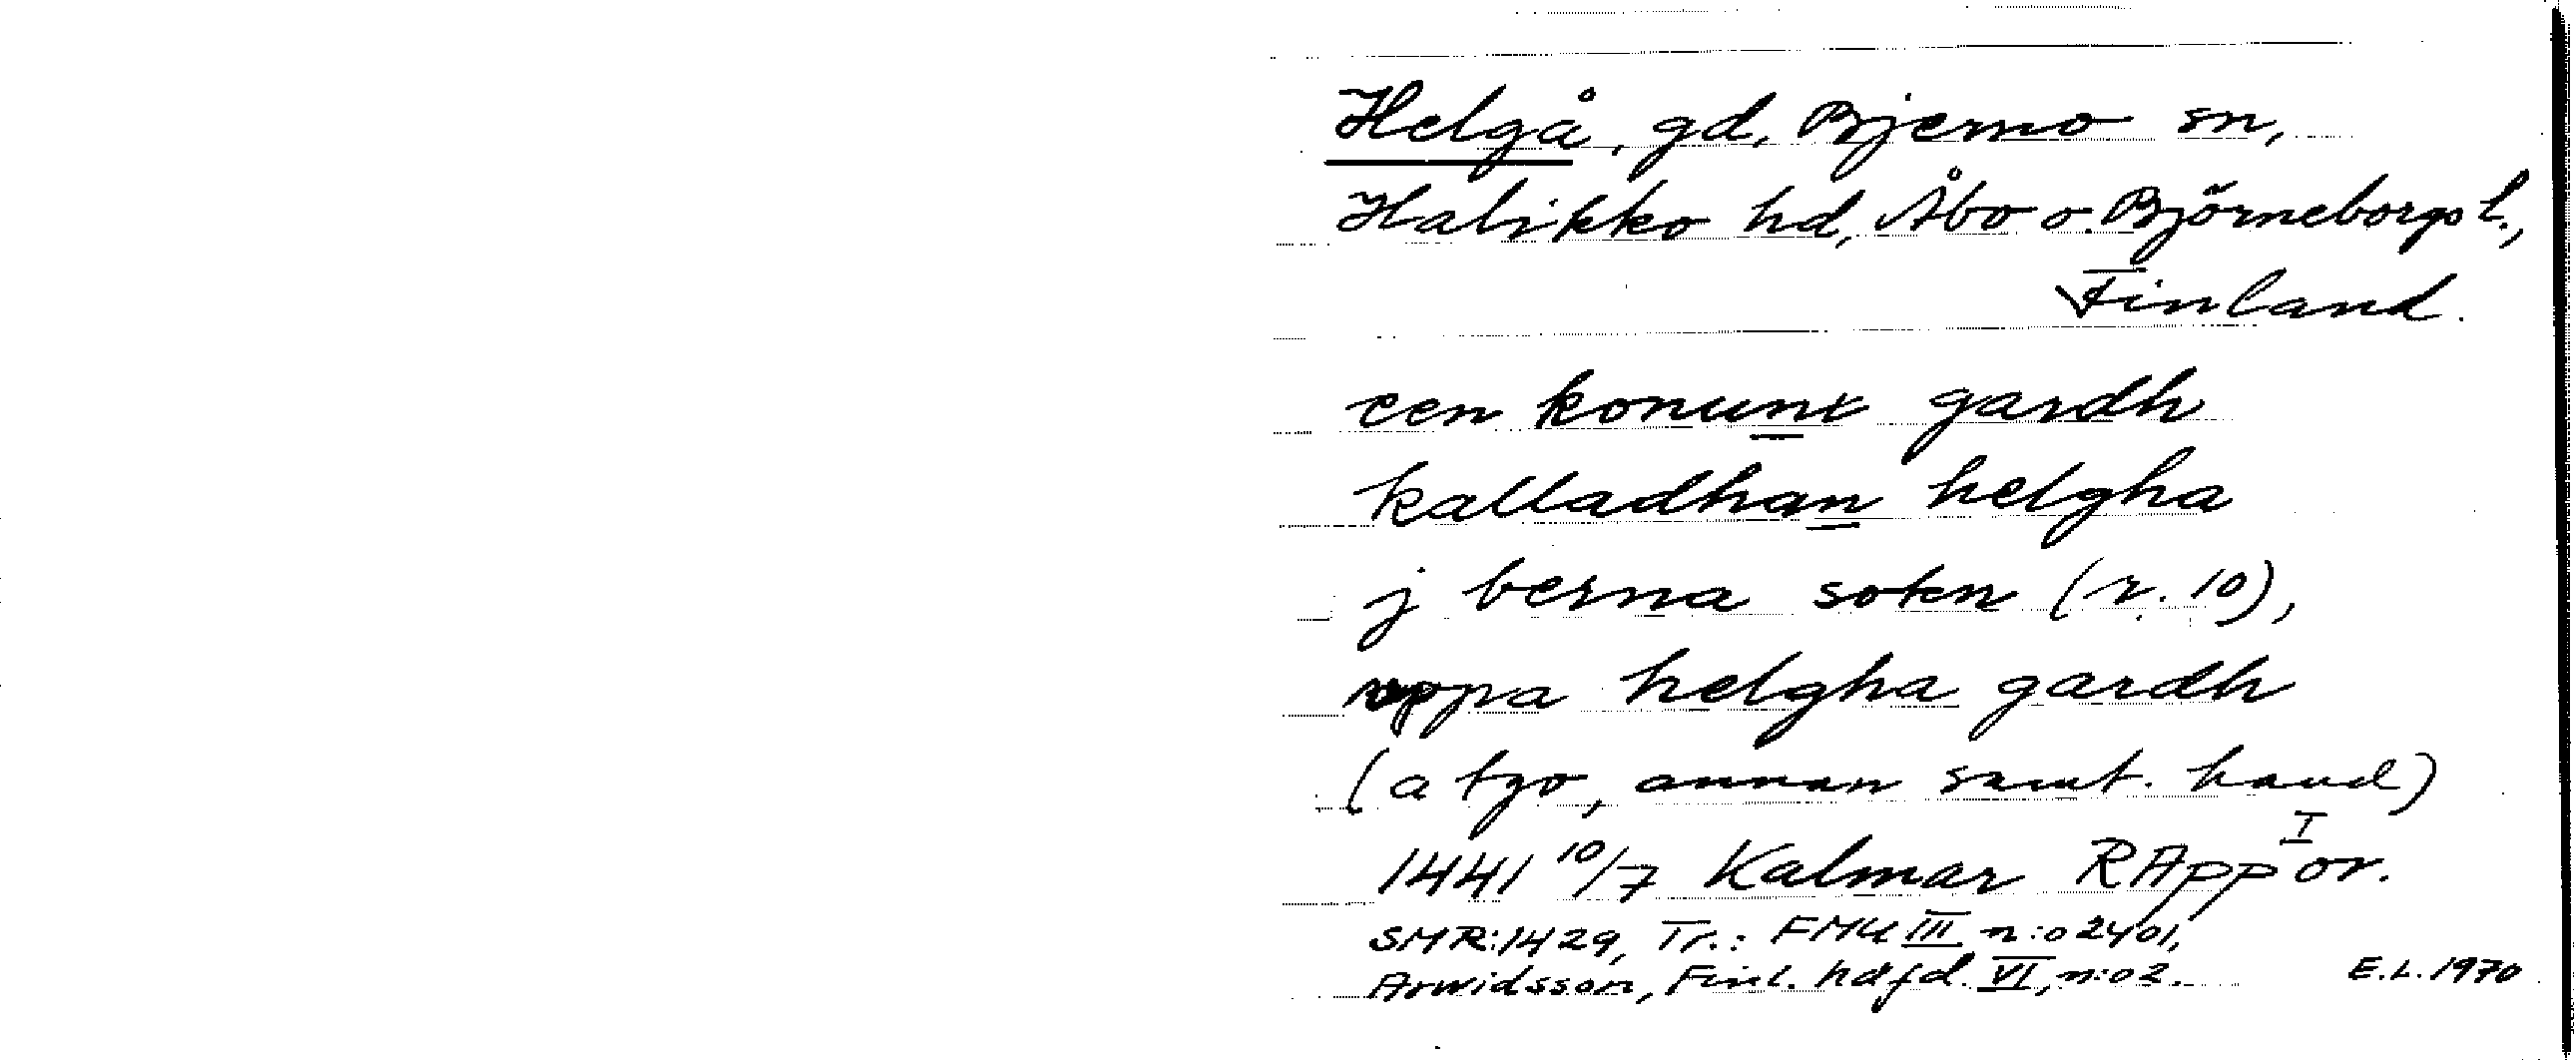 Helgå, gd, Bjerno sn,
Halikko hd, Åbo o. Björneborgs l.,
Finland.
een konunx gardh
kalladhan helgha
j berna sokn (r. 10),
uppa helgha gardh
(a tgo, annan samt. hand)
1441 10/7 Kalmar RApp I or.
SMR:1429, Tr.: FMU III n:o 2401,
Arwidsson, Finl. hdfd. VI, n:o 2. E.L. 1970